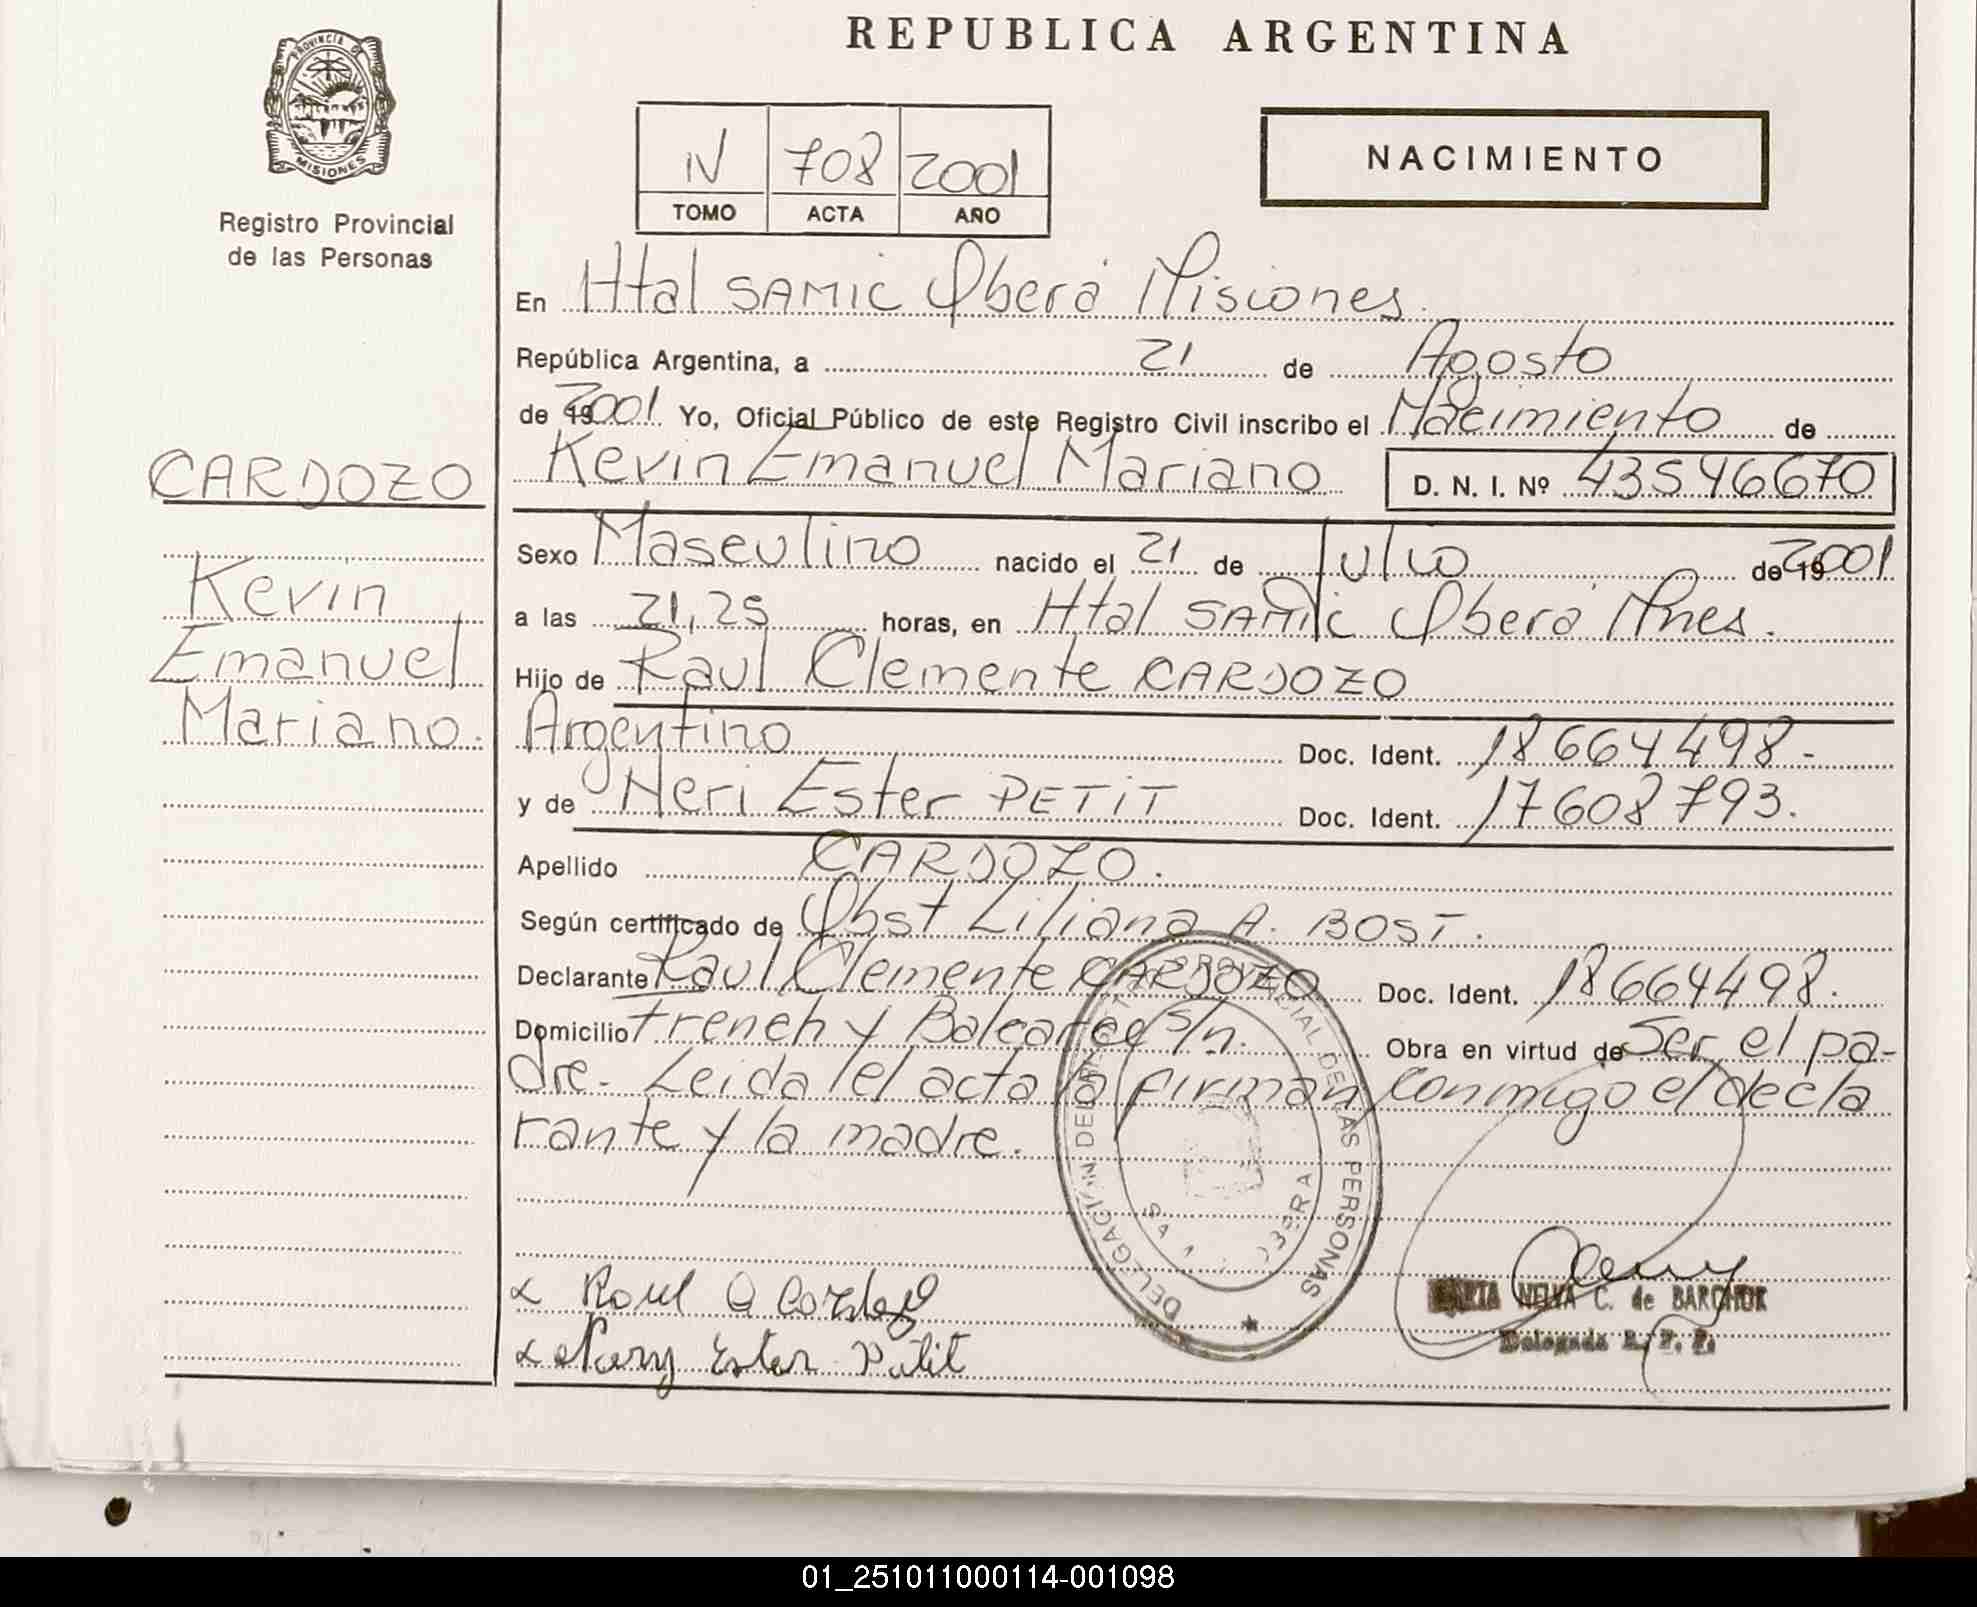 REPUBLICA ARGENTINA
PROVINCIA D
MISIONES
Registro Provincial
de las Personas
TOMO IV ACTA 708 AÑO 2001
NACIMIENTO
En Htal SAMIC Oberá Misiones.
República Argentina, a 21 de Agosto
de 19 2001. Yo, Oficial Público de este Registro Civil inscribo el Nacimiento de
CARDOZO
Kevin Emanuel Mariano D. N. I. Nº 43546670
Sexo Masculino nacido el 21 de Julio de 19 2001
Kevin
a las 21,25 horas, en Htal SAMIC Oberá Mnes.
Emanuel
Hijo de Raul Clemente CARDOZO
Mariano.
Argentino Doc. Ident. 18664498-
y de Neri Ester PETIT Doc. Ident. 17608793.
Apellido CARDOZO.
Según certificado de Obst Liliana A. BOST.
Declarante Raul Clemente CARDOZO Doc. Ident. 18664498.
Domicilio French y Baleares s/n. Obra en virtud de Ser el pa-
dre. Leida el acta la firman conmigo el decla
rante y la madre.
DELEGACIÓN DEL REGISTRO PROVINCIAL DE LAS PERSONAS
Raul C Cardozo
Nery Ester Petit
MARIA NELVA C. de BARCHUK
Delegada R. P. P.
01_251011000114-001098